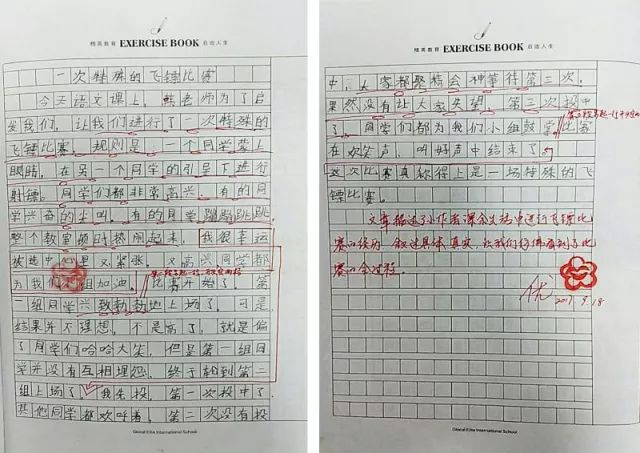 精英教育 EXERCISE BOOK 启迪人生
一次特殊的飞镖比赛
今天语文课上，熊老师为了启
发我们，让我们进行了一次特殊的
飞镖比赛。规则是：一个同学蒙上
眼睛，在另一个同学的引导下进行
射镖。同学们都非常高兴，有的同
学兴奋的尖叫，有的同学蹦蹦跳跳，
整个教室顿时热闹起来，我很幸运
被选中，心里又紧张，又高兴，同学都
为我们组加油。比赛开始了，第
一组同学兴致勃勃地上场了，可是
结果并不理想，不是高了，就是偏
了同学们哈哈大笑，但是第一组同
学并没有互相埋怨，终于轮到第二
组上场了，我先投，第一次投中了
其他同学都欢呼着，第二次没有投
Glocal Elite International School
精英教育 EXERCISE BOOK 启迪人生
中，大家都聚精会神等待第三次，
果然没有让大家失望，第三次投中
了，同学们都为我们小组鼓掌，比赛
在欢笑声、叫好声中结束了。
这次比赛真称得上是一场特殊的飞
镖比赛。
文章描述了小作者课余生活中进行飞镖比
赛的经历，叙述具体真实，让我们仿佛看到了比
赛的全过程。
优
2017.9.18
Glocal Elite International School